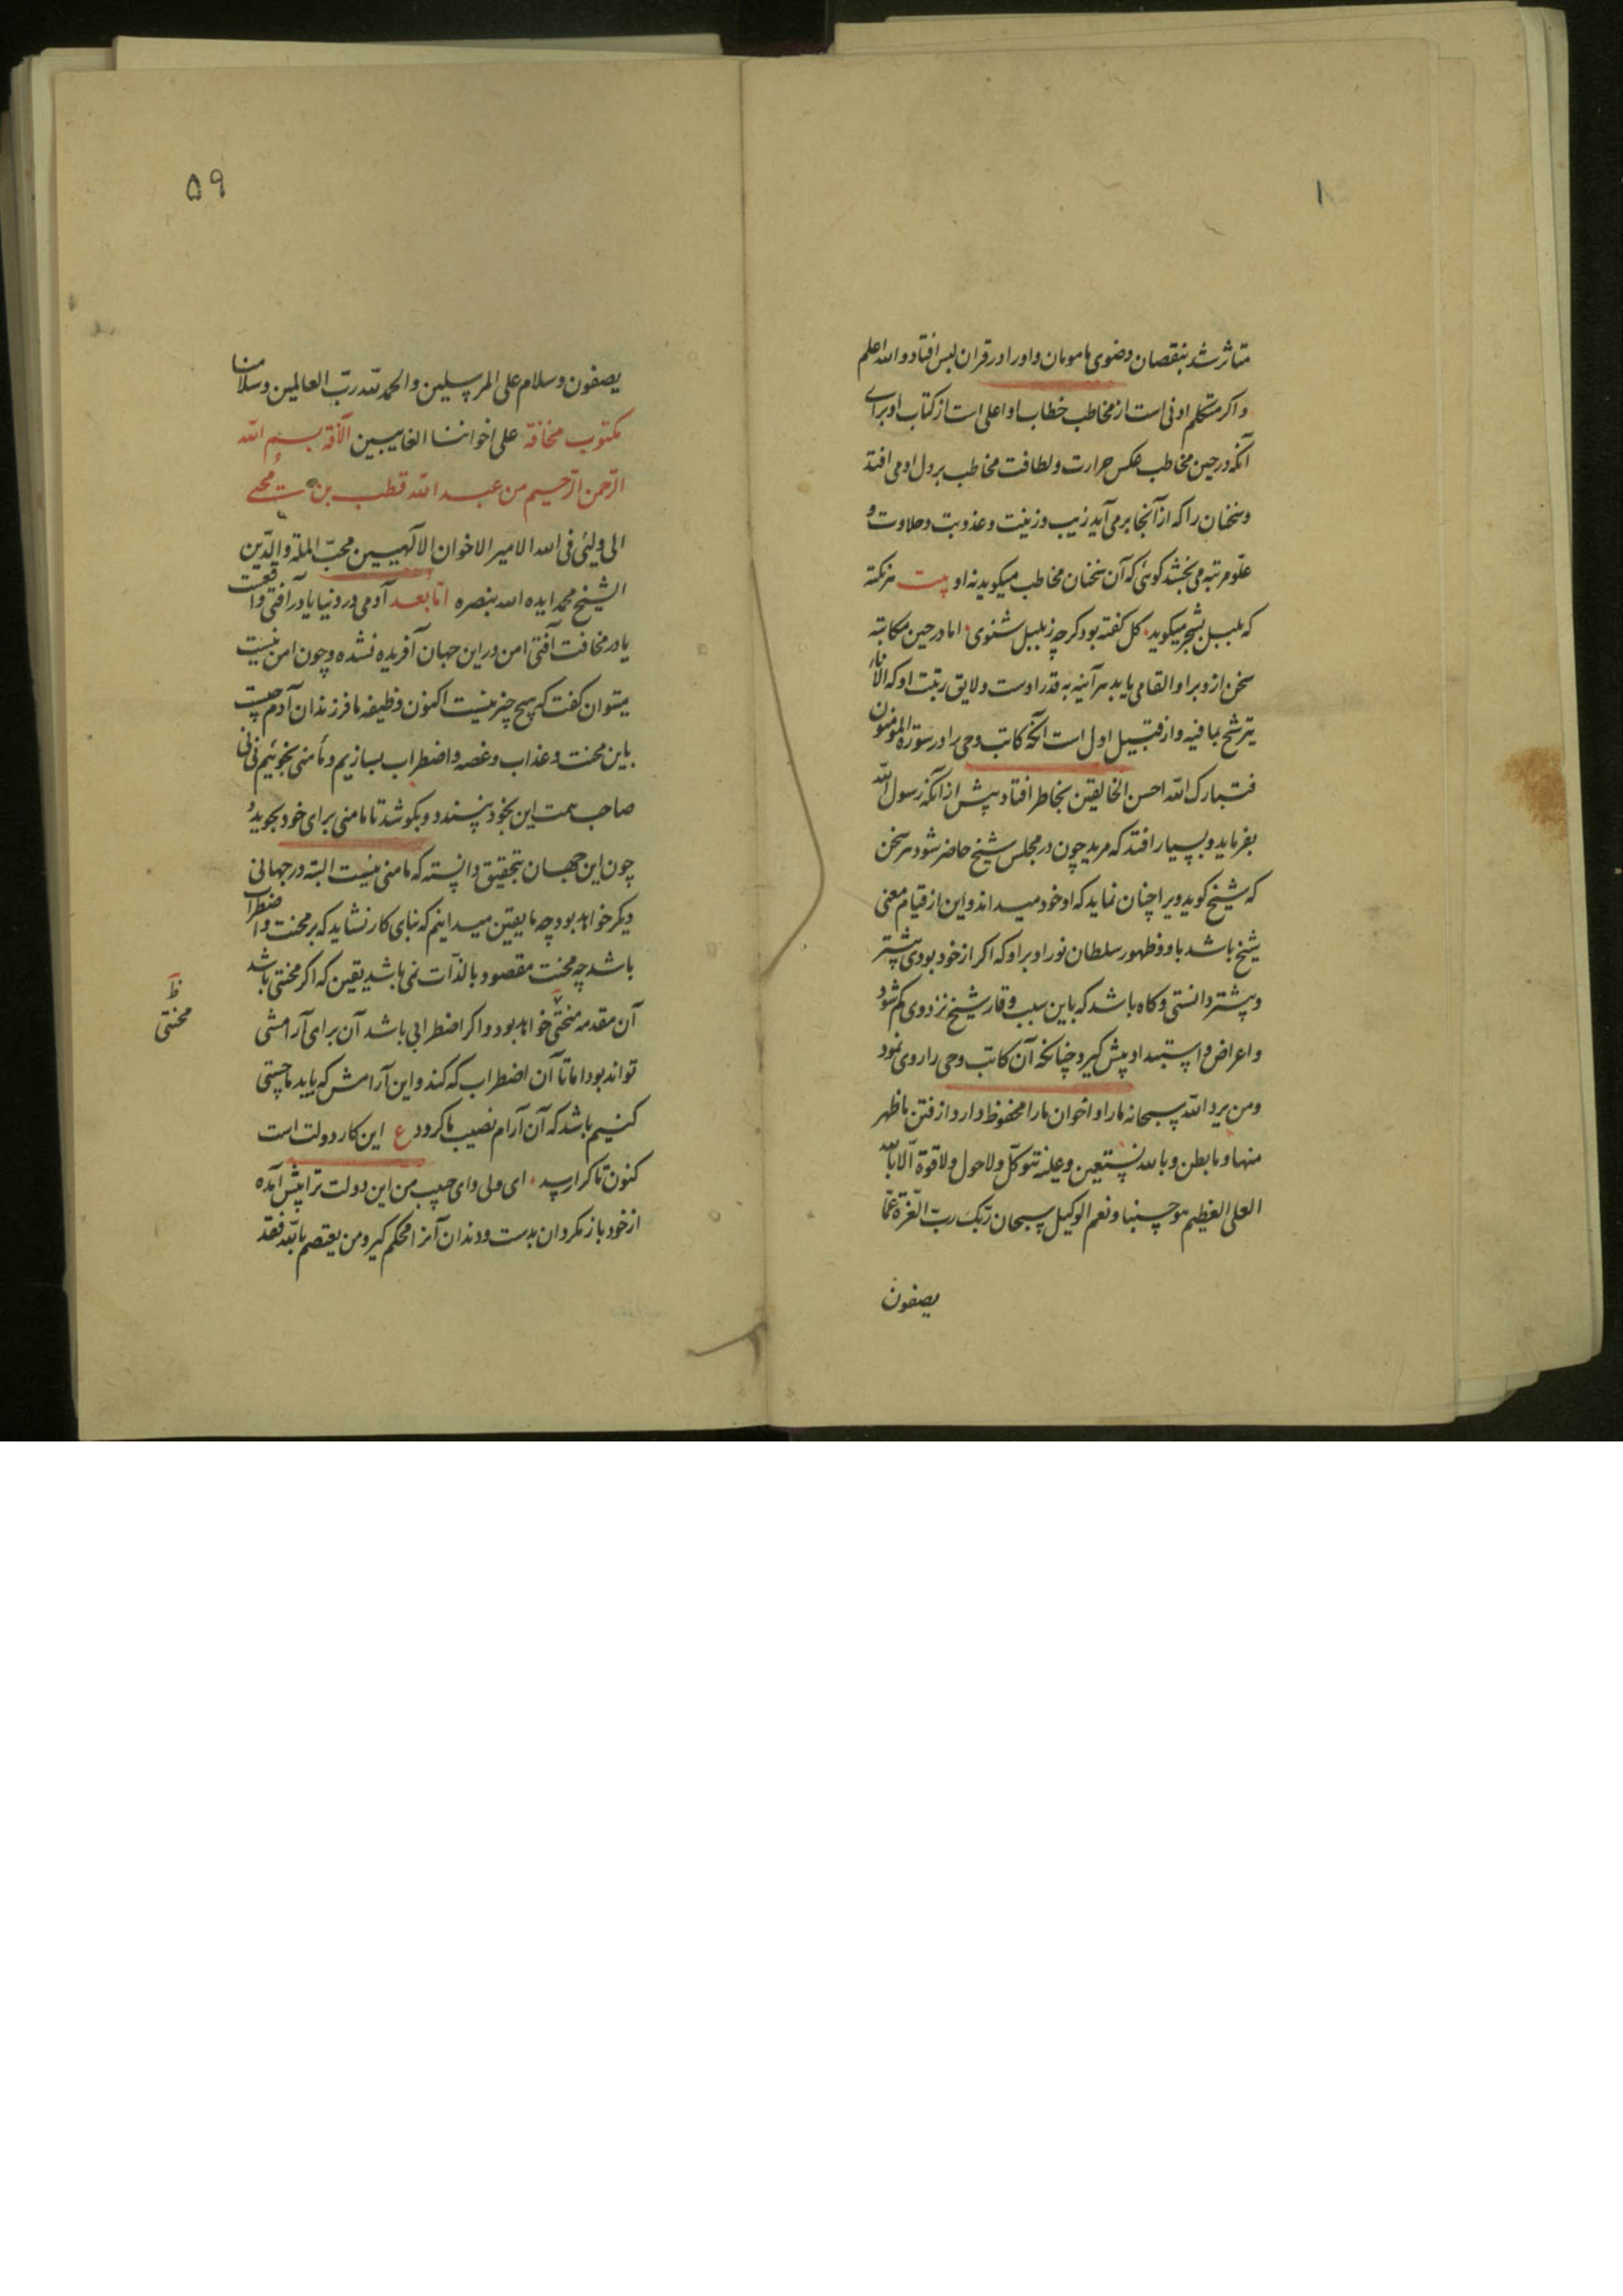 ۱
متاثر شد بنقصان وضوی مامومان و او را در قران لبس افتاد و الله اعلم
و اکر متکلم ادنی است از مخاطب خطاب او اعلی است از کتاب او برای
آنکه در حین مخاطب عکس حرارت و لطافت مخاطب بر دل او می افتد
و سخنان را که از آنجا بر می آید زیب و زینت و عذوبت و حلاوت و
علو مرتبه می بخشد کوئی که آن سخنان مخاطب میکوید نه او بیت هر نکته
که بلبل بشجر میکوید کل کفته بود کرچه ز بلبل شنوی اما در حین مکاتبه
سخن از و بر او القا می یابد هر آینه به قدر اوست و لایق رتبت او که الاناء
یترشح بما فیه و از قبیل اول است آنکه کاتب وحی را در سوره المومنون
فتبارک الله احسن الخالقین بخاطر افتاد پیش از آنکه رسول الله
بفرماید و بسیار افتد که مرید چون در مجلس شیخ حاضر شود هر سخن
که شیخ کوید ویرا چنان نماید که او خود میداند و این از قیام معنی
شیخ باشد باو و ظهور سلطان نور او بر او که اکر از خود بودی پیشتر
و بیشتر دانستی و کاه باشد که باین سبب وقار شیخ نزد وی کم شود
و اعراض و استبداد پیش کیرد چنانکه آن کاتب وحی را روی نمود
ومن یرد الله سبحانه ما را و اخوان ما را محفوظ دارد از فتن ما ظهر
منها و ما بطن و بالله نستعین وعلیه نتوکل ولا حول ولا قوة الا بالله
العلی العظیم هو حسبنا ونعم الوکیل سبحان ربک ربّ العزة عمّا
یصفون
۵۹
یصفون وسلام علی المرسلین والحمد لله ربّ العالمین وسلامنا
مکتوب مخافة علی اخواننا الغایبین الآفة بسم الله
الرحمن الرحیم من عبد الله قطب بن محیی
الی ولیّی فی الله الامیر الاخوان الالهیین محبّ الملة والدّین
الشیخ محمد ایده الله بنصره اما بعد آدمی در دنیا یا در آفتی واقعست
یا در مخافت آفتی امن در این جهان آفریده نشده و چون امن نیست
میتوان کفت که هیچ چیز نیست اکنون وظیفه ما فرزندان آدم چیست
باین محنت و عذاب و غصه و اضطراب بسازیم و مأمنی نجوئیم نی نی
صاحب همت این بخود نپسندد و بکوشد تا مامنی برای خود بجوید و
چون این جهان بتحقیق دانسته که مامنی نیست البته در جهانی
دیکر خواهد بود چه ما یقین میدانیم که بنای کار نشاید که بر محنت و اضطراب
باشد چه محنت مقصود بالذّات نمی باشد یقین که اکر محنتی باشد
آن مقدمه منحتی خواهد بود و اکر اضطرابی باشد آن برای آرامشی
تواند بود اما تا آن اضطراب که کند و این آرامش که یابد ما چستی
کنیم باشد که آن آرام نصیب ما کردد ع این کار دولت است
کنون تا کرا رسد ای ولی و ای حبیب من این دولت ترا پیش آمده
از خود باز مکردان بدست و دندان آنرا محکم کیر و من یعتصم بالله فقد
ظ
محنتی